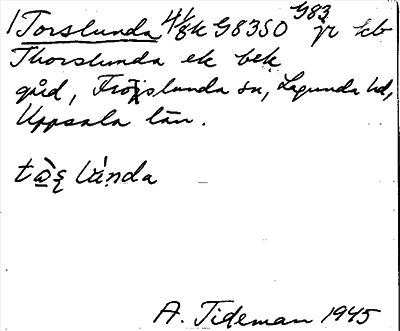 1 Torslunda 4 1/8 k G8350 G83 jr kb
Thorslunda ek bek
gård, Fröslunda sn, Lagunda hd,
Uppsala län.
lánda
A. Tideman 1945